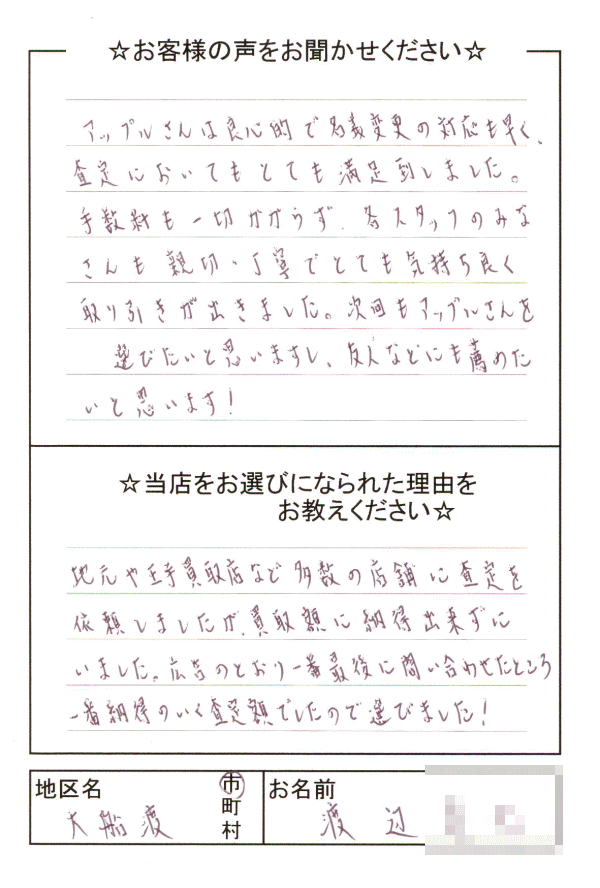 ☆お客様の声をお聞かせください☆
アップルさんは良心的で名義変更の対応も早く、
査定においてもとても満足到しました。
手数料も一切かからず、各スタッフのみな
さんも親切・丁寧でとても気持ち良く
取り引きが出きました。次回もアップルさんを
選びたいと思いますし、友人などにも薦めた
いと思います!
☆当店をお選びになられた理由を
お教えください☆
地元や大手買取店など多数の店舗に査定を
依頼しましたが、買取額に納得出来ずに
いました。広告のとおり一番最後に問い合わせたところ
一番納得のいく査定額でしたので選びました!
地区名
大船渡
市
町
村
お名前
渡辺